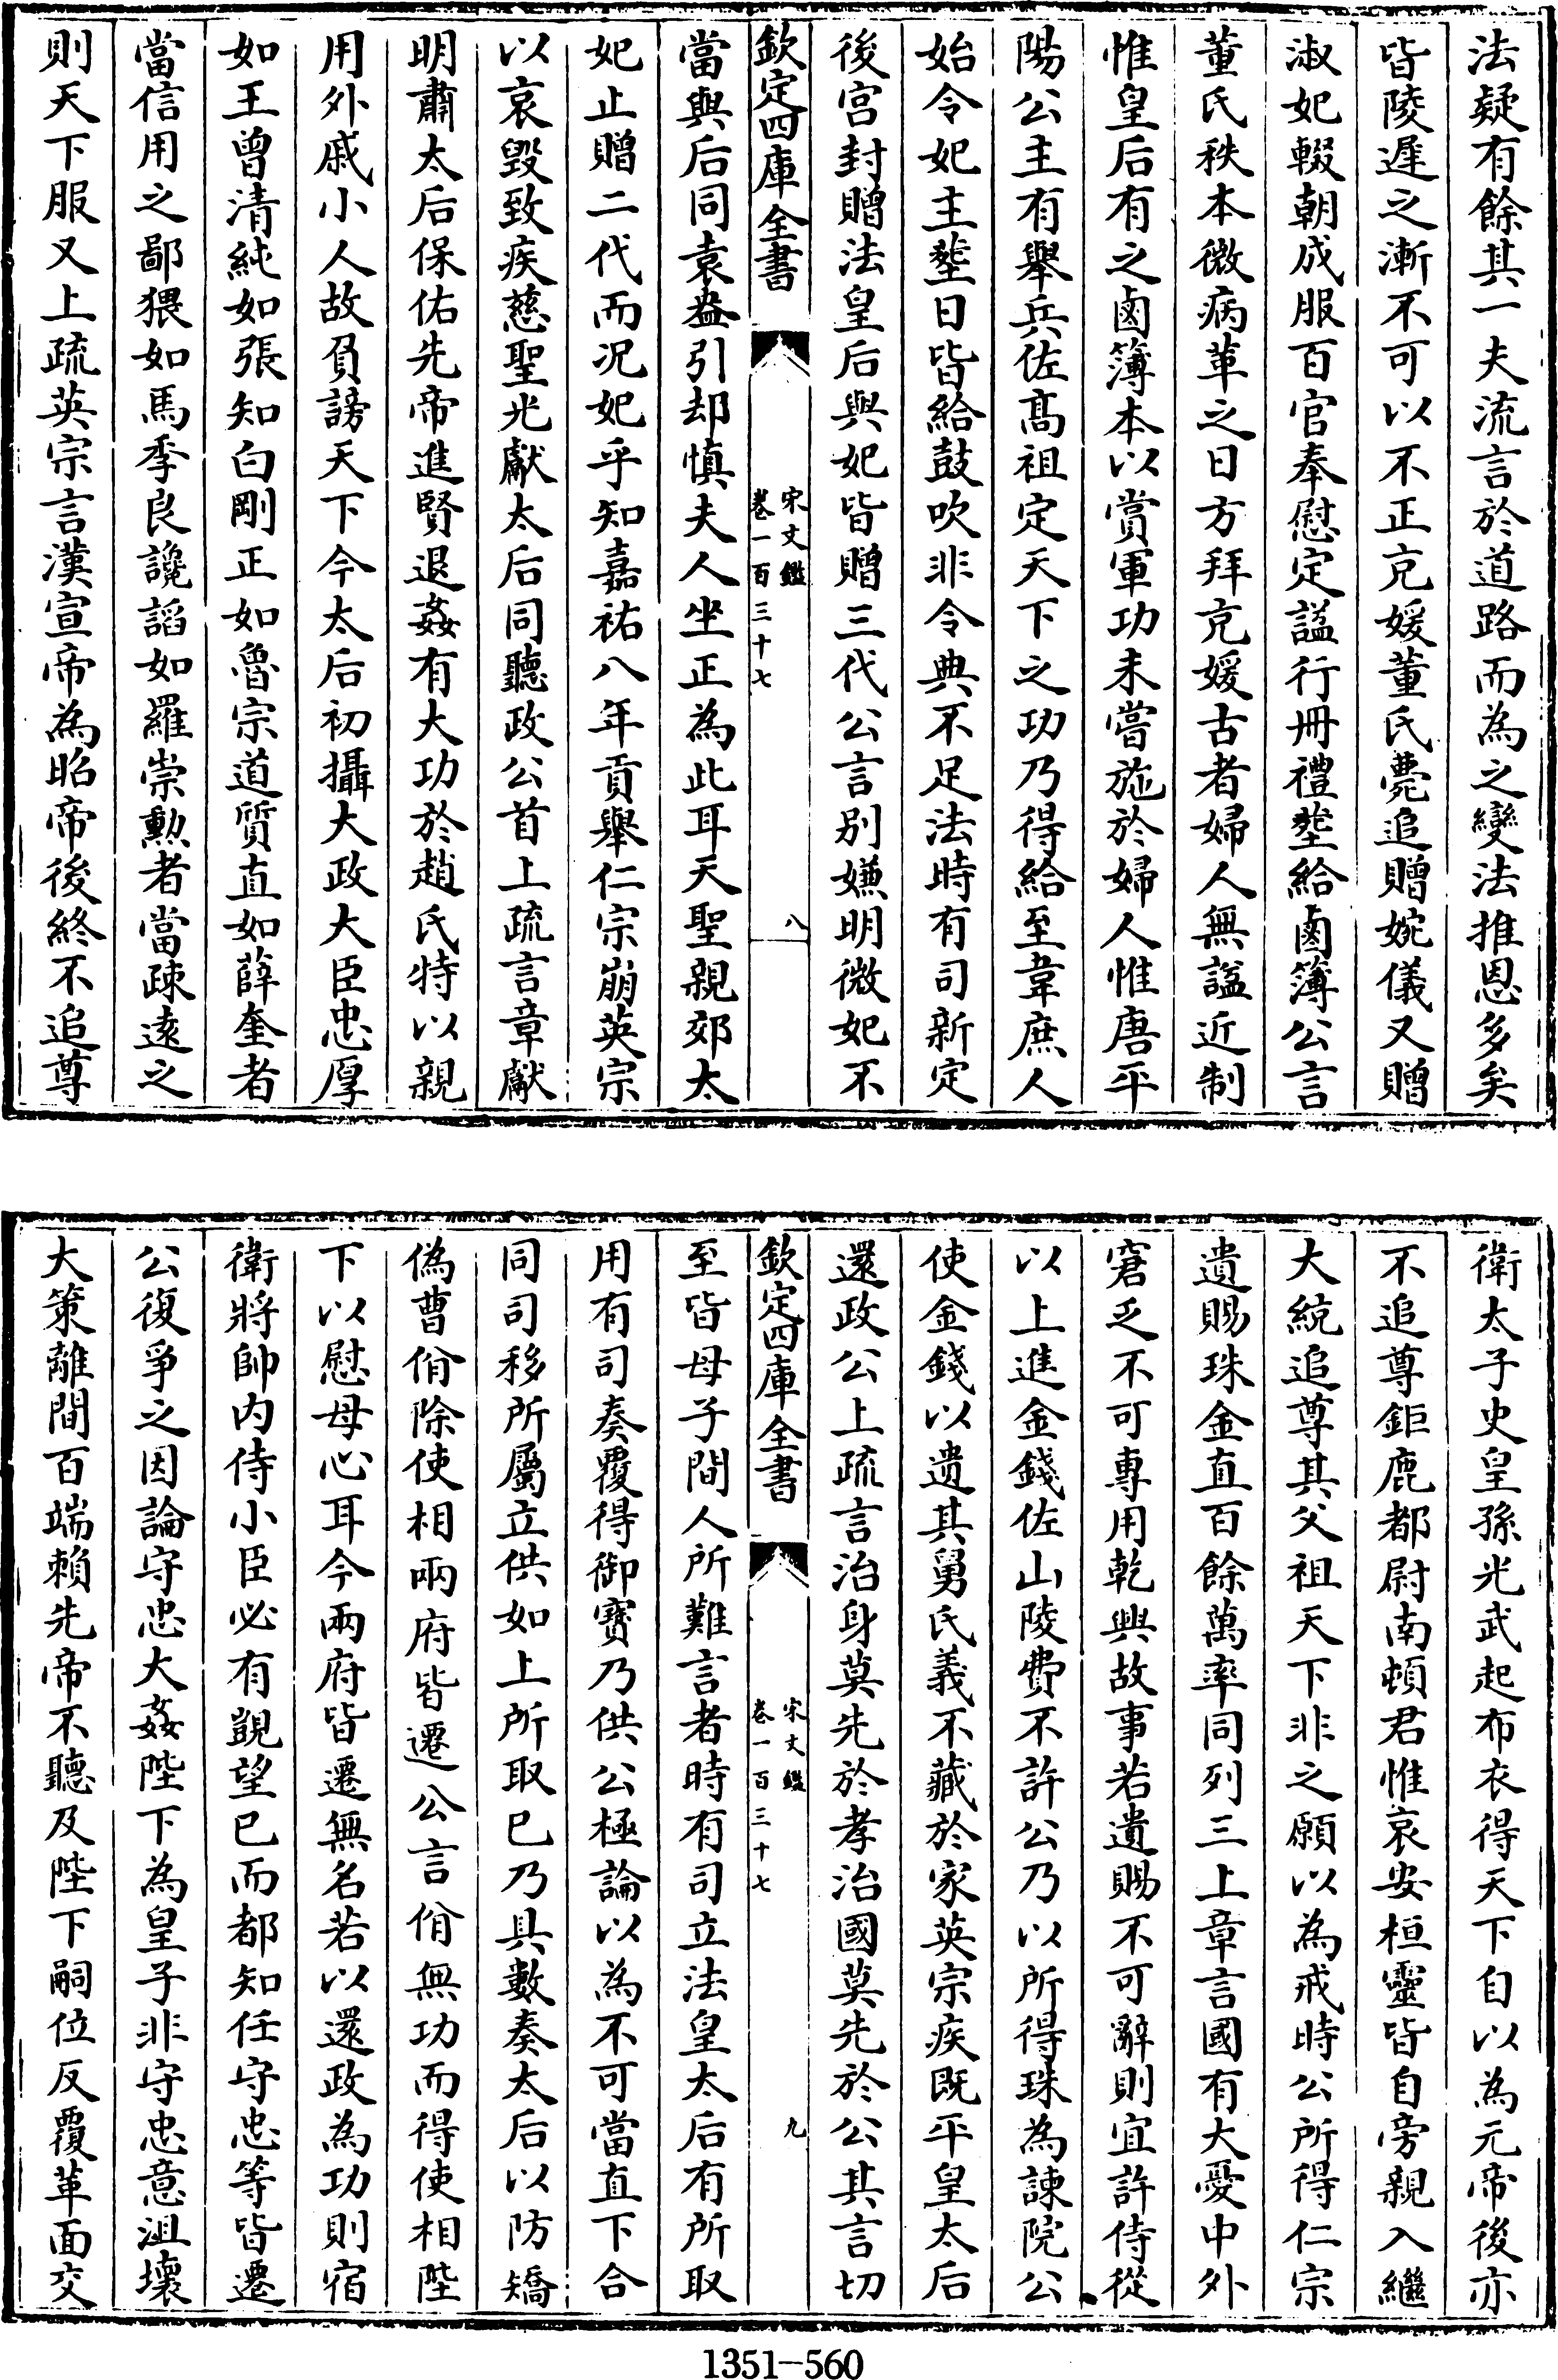 法疑有餘其一夫流言於道路而為之變法推恩多矣
皆陵遲之漸不可以不正充媛董氏薨追贈婉儀又贈
淑妃輟朝成服百官奉慰定謚行冊禮塟給鹵簿公言
董氏秩本微病革之日方拜充媛古者婦人無謚近制
惟皇后有之鹵簿本以賞軍功未嘗施於婦人惟唐平
陽公主有舉兵佐髙祖定天下之功乃得給至韋庶人
始令妃主塟日皆給鼓吹非令典不足法時有司新定
後宮封贈法皇后與妃皆贈三代公言別嫌明微妃不
欽定四庫全書
宋文鑑
卷一百三十七
八
當與后同袁盎引却慎夫人坐正為此耳天聖親郊太
妃止贈二代而况妃乎知嘉祐八年貢舉仁宗崩英宗
以哀毀致疾慈聖光獻太后同聽政公首上疏言章獻
明肅太后保佑先帝進賢退姦有大功於趙氏特以親
用外戚小人故負謗天下今太后初攝大政大臣忠厚
如王曾清純如張知白剛正如魯宗道質直如薛奎者
當信用之鄙猥如馬季良讒謟如羅崇勲者當疎逺之
則天下服又上疏英宗言漢宣帝為昭帝後終不追尊
衛太子史皇孫光武起布衣得天下自以為元帝後亦
不追尊鉅鹿都尉南頓君惟哀安桓靈皆自旁親入繼
大統追尊其父祖天下非之願以為戒時公所得仁宗
遺賜珠金直百餘萬率同列三上章言國有大憂中外
窘乏不可專用乾興故事若遺賜不可辭則宜許侍從
以上進金錢佐山陵費不許公乃以所得珠為諫院公
使金錢以遺其舅氏義不藏於家英宗疾既平皇太后
還政公上疏言治身莫先於孝治國莫先於公其言切
欽定四庫全書
宋文鑑
卷一百三十七
九
至皆母子間人所難言者時有司立法皇太后有所取
用有司奏覆得御寶乃供公極論以為不可當直下合
同司移所屬立供如上所取已乃具數奏太后以防矯
偽曹佾除使相兩府皆遷公言佾無功而得使相陛
下以慰母心耳今兩府皆遷無名若以還政為功則宿
衛將帥内侍小臣必有覬望已而都知任守忠等皆遷
公復爭之因論守忠大姦陛下為皇子非守忠意沮壞
大策離間百端賴先帝不聽及陛下嗣位反覆革面交
1351—560